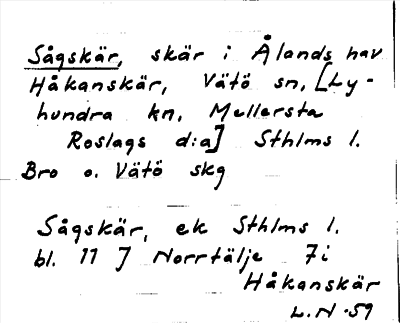 Sågskär, skär i Ålands hav
Håkanskär, Vätö sn, [Ly-
hundra kn, Mellersta
Roslags d:a] Sthlms l.
Bro o. Vätö skg
Sågskär, ek Sthlms l.
bl. 11 J Norrtälje 7i
Håkanskär
L.N -59